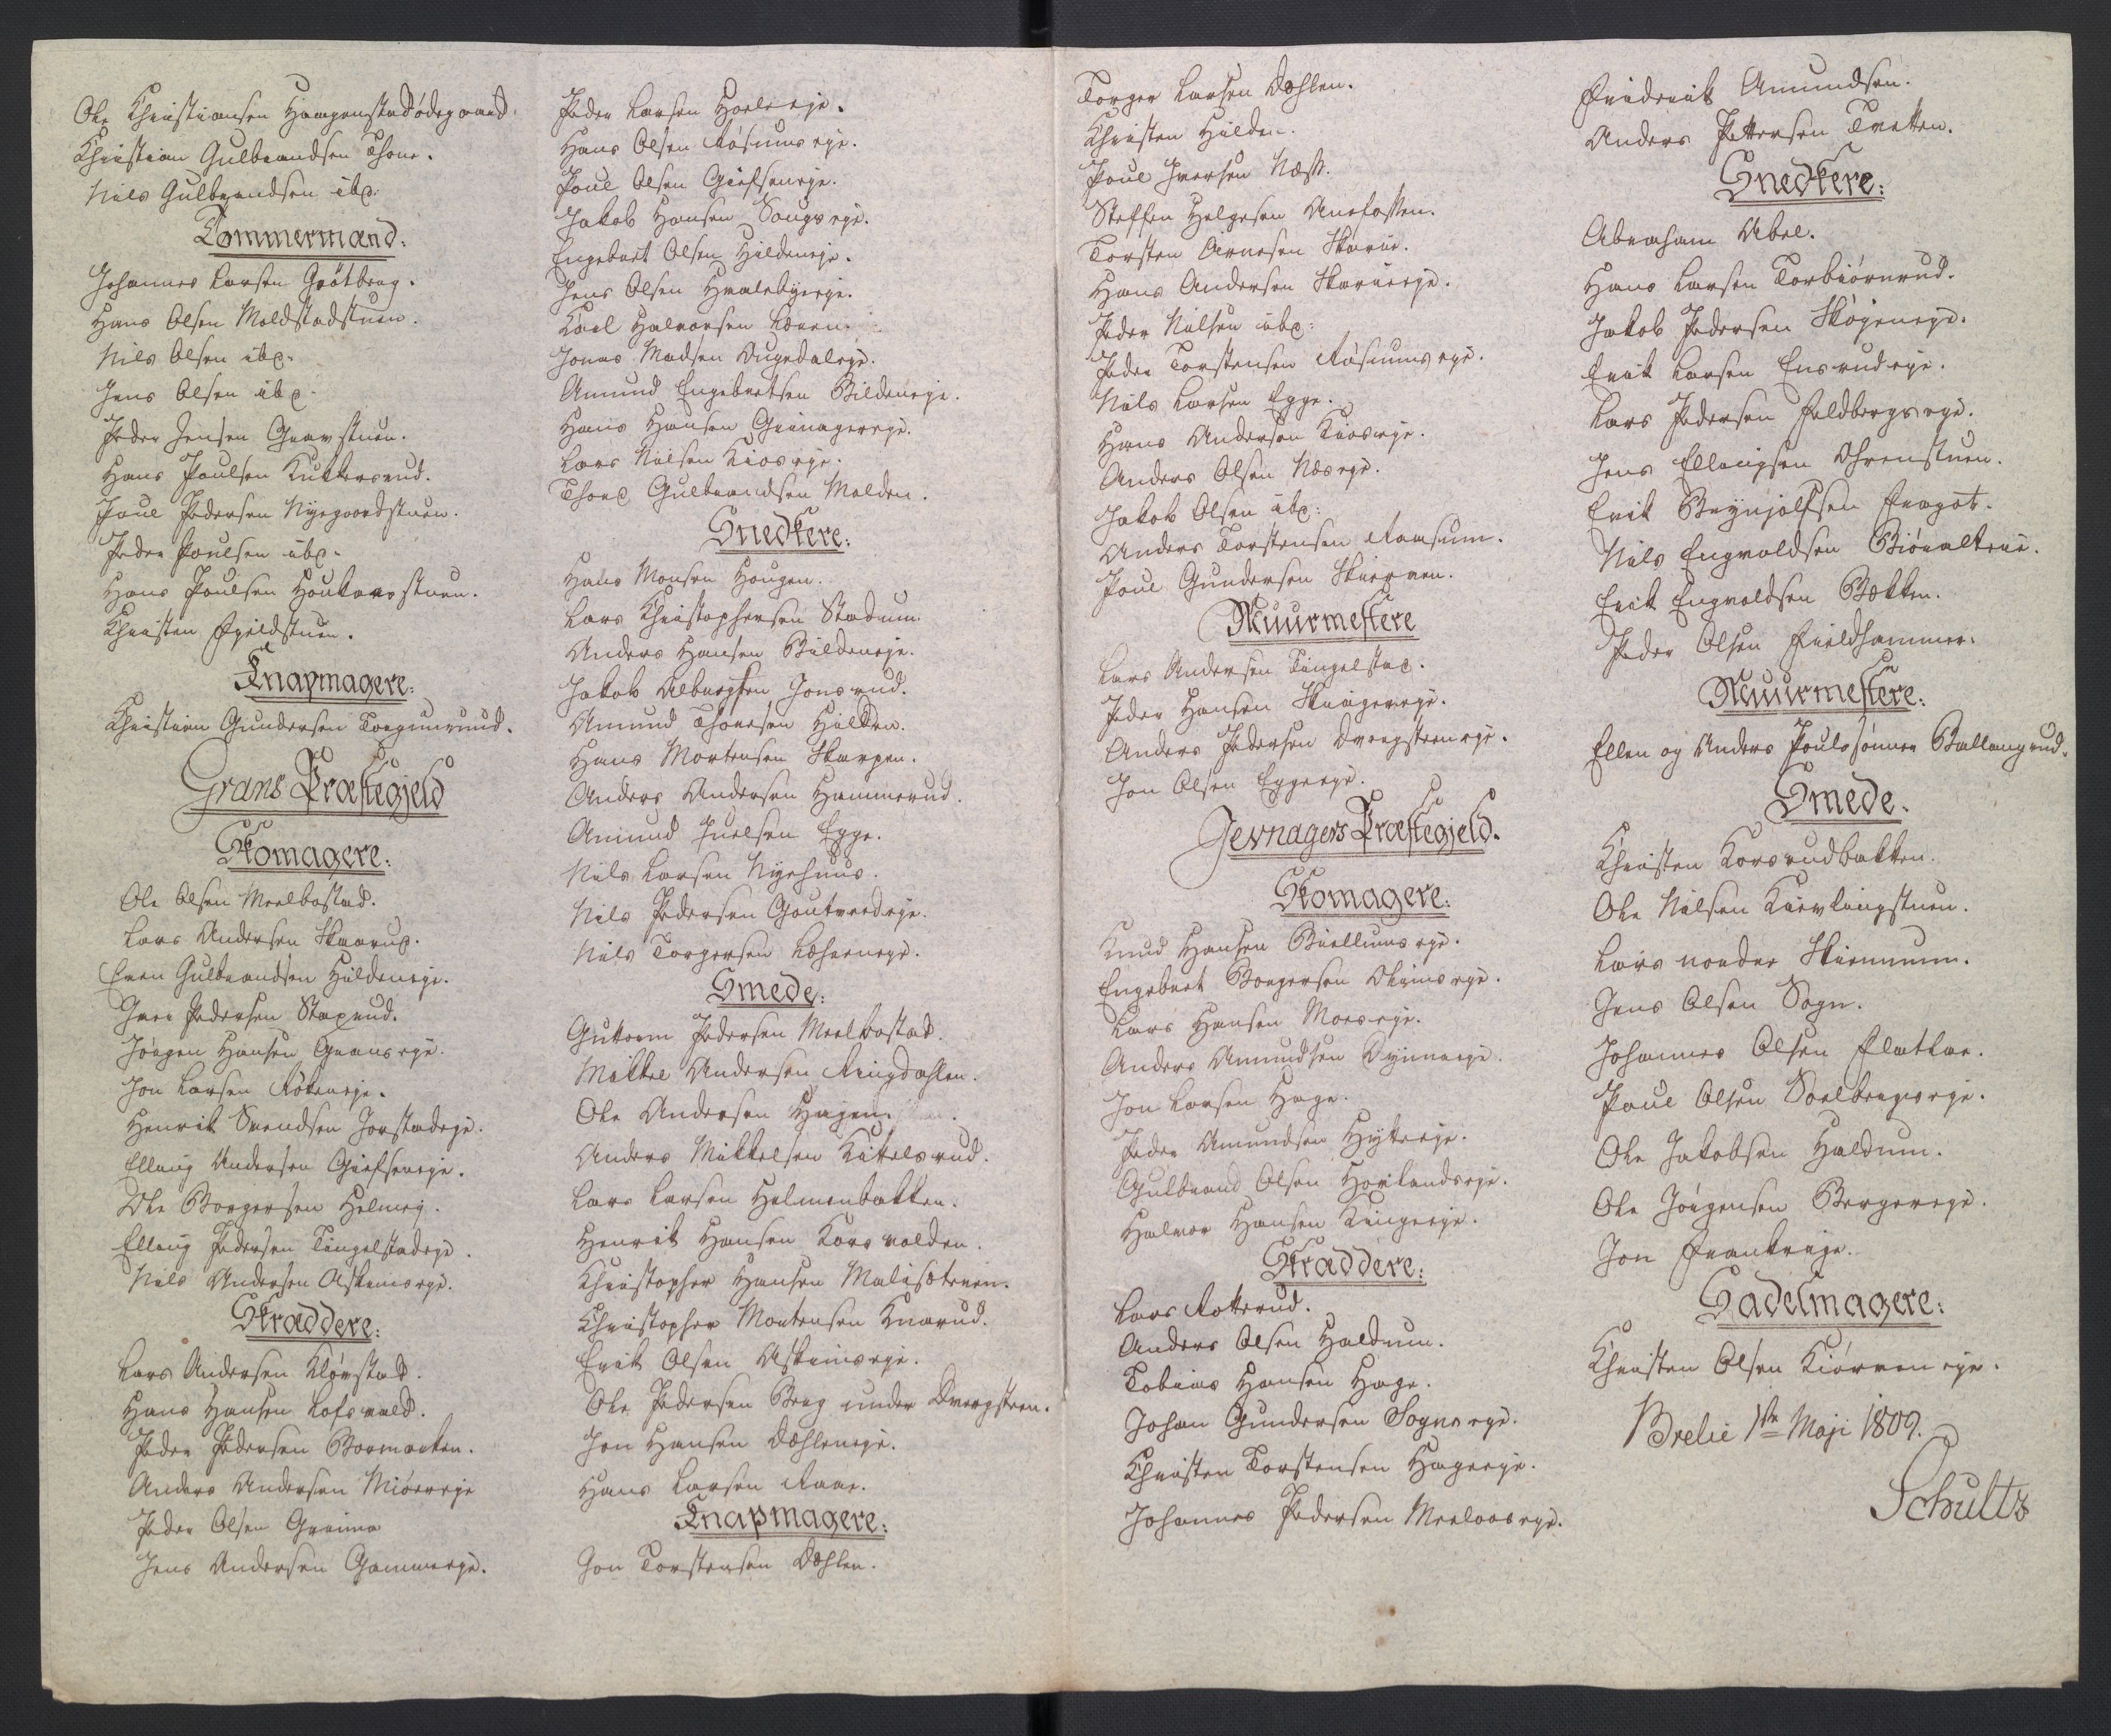 Ole Christiansen Haagenstadødegaard.
Christian Gulbrandsen Thone.
Niels Gulbrandsen ibd:
Tømmermænd:
Johannes Larsen Grøtberg.
Hans Olsen Moldstadstuen.
Nils Olsen ibd.
Jens Olsen ibd.
Peder Jensen Gravstuen.
Hans Poulsen Kuttersrud.
Poul Pedersen Nyegaardstuen.
Peder Poulsen ibd.
Hans Poulsen Houkaasstuen.
Christen Egildstuen.
Knapmagere:
Christian Gundersen
Grans Præstegjeld
Skomagere:
Ole Olsen Meelbostad.
Lars Andersen Skaarud.
Even Gulbrandsen Hildeneje.
Iver Pedersen Staxrud.
Jørgen Hansen Granseje.
Jon Larsen Røkeneje.
Henrik Svendsen Jorstadeje.
Elling Andersen Giefseneje.
Ole Borgersen Helmej.
Elling Pedersen Tingelstadeje.
Nils Andersen Askimseje.
Skræddere:
Lars Andersen Kløvstad.
Hans Hansen Lofsvold.
Peder Pedersen Bormarken.
Anders Andersen Miøreeje
Peder Olsen Grinna
Jens Andersen Gammeeje.
Peder Larsen Horleeje.
Hans Olsen Røsumseje.
Poul Olsen Giefseneje.
Jakob Hansen Sougseje.
Engebret Olsen Hildeneje.
Jens Olsen Hvalebyeeje.
Karl Halvorsen Læren.
Jonas Madsen Dugedaleje.
Amund Engebretsen Bildeneje.
Hans Hansen Grinagereje.
Lars Nilsen Kioseje.
Thord Gulbrandsen Molden.
Snedkere:
Hans Monsen Hougen.
Lars Christophersen Stadum.
Anders Hansen Bildeneje.
Jakob Albregtsen Jonsrud.
Amund Thoresen Hilden.
Hans Mortensen Skarpen.
Anders Andersen Hammerud.
Amund Juelsen Egge.
Nils Larsen Nyehuus.
Nils Pedersen Goutvedeje.
Nils Torgersen Læhreneje.
Smede:
Guttorm Pedersen Meelbostad.
Mikkel Andersen Ringdahlen.
Ole Andersen Hagen.
Anders Mikkelsen Kittelsrud.
Lars Larsen Helmenbakken.
Henrik Hansen Korsvolden.
Christopher Hansen Malisæteien.
Christopher Mortensen Knarud.
Erik Olsen Askimseje.
Ole Pedersen Berg under Dvergsteen.
Jon Hansen Dæhleneje.
Hans Larsen Raae.
Knapmagere:
Jon Torstensen Dæhlen.
Torger Larsen Dæhlen.
Christen Hilden.
Poul Iversen Næss.
Steffen Helgesen Anefossen.
Torsten Arnesen Skarie.
Hans Andersen Skarieeje.
Peder Nilsen ibd:
Peder Torstensen Røsumseje.
Nils Larsen Egge.
Hans Andersen Kioseje.
Anders Olsen Næseje.
Jakob Olsen ibd:
Anders Torstensen Raasum.
Poul Gundersen Skiervven.
Muurmestere
Lars Andersen Tingelstad.
Peder Hansen Skiageneje.
Anders Pedersen Dvergsteeneje.
Jon Olsen Eggeeje.
Jevnagers Præstegjeld.
Skomagere:
Knud Hansen Biellumseje.
Engebret Borgersen Ohrimseje.
Lars Hansen Moeseje.
Anders Amundsen Dynneeje.
Jon Larsen Hage.
Peder Amundsen Hytteeje.
Gulbrand Olsen Hovlandseje.
Halvor Hansen Kingeeje.
Skræddere:
Lars Rotterud.
Anders Olsen Haldum.
Tobias Hansen Hage.
Johan Gundersen Sogneeje.
Christen Torstensen Hageeje.
Johannes Pedersen Moeloeeje.
Friderik Amundsen.
Anders Pettersen Tvetten.
Snedkere:
Abraham Abel.
Hans Larsen Torbiørnrud.
Jakob Pedersen Skøyeneje.
Erik Larsen Ensrudeje.
Lars Pedersen Feldbergseje.
Jens Ellingsen Ohrenstuen.
Erik Brynjolfsen Fragot.
Nils Engvoldsen Biøraltrie.
Erik Engvoldsen Bækken.
Peder Olsen Fieldhammer.
Muurmestere:
Ellen og Anders Poulssønner Ballangrud.
Smede.
Christen Korsrudbakken.
Ole Nilsen Kievlingstuen.
Lars nordre Skiennum.
Jens Olsen Sogn.
Johannes Olsen Flatlae.
Poul Olsen Soelbergseje.
Ole Jakobsen Haldum.
Ole Jørgensen Bergereje.
Jon Frankeeje.
Sadelmagere:
Christen Olsen Kiørveneje.
Brelie 1ste Maji 1809.
Schultz